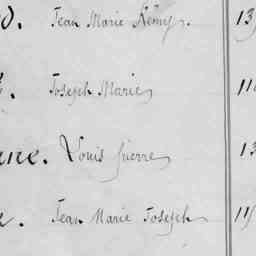 Jean Marie Rémy. 13
Joseph Marie 11
ne. Louis Pierre 13
Jean Marie Joseph 11